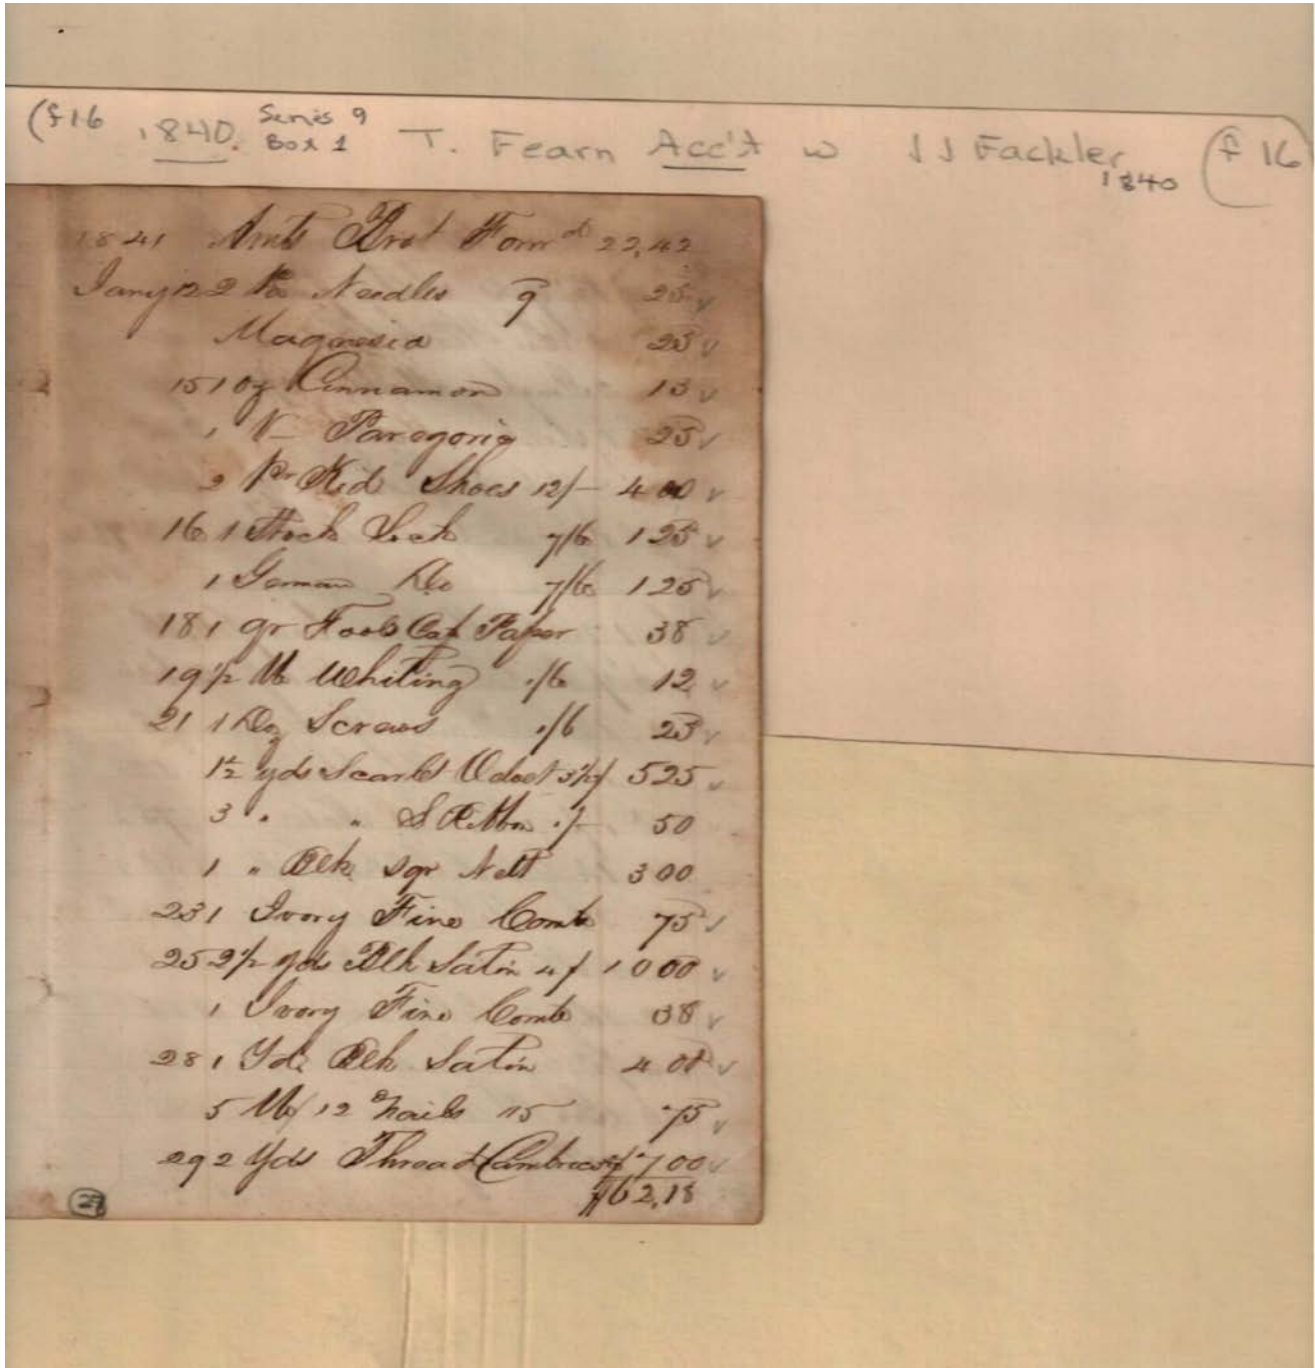 (f16 1840. Series 9 Box 1 T. Fearn Acc't w J J Fackler 1840 (f 16)
1841 Amts Brot Forwd 22,42
Jany 12 2 Pa Needles 9 25 v
Magnesia 25 v
15 1 oz Cinnamon 13 v
1 V Paregoric 25 v
2 Pr Kid Shoes 12/– 4 00 v
16 1 Stock Lock 7/6 1 25 v
1 German Do 7/6 1 25 v
18 1 qr Fools Cap Paper 38 v
19 1/2 lb Whiting ./6 12 v
21 1 Doz Screws ./6 25 v
1 1/2 yds Scarlet Velvet 5 25 v
3 . " S Ribbon ./– 50
1 " Blk sqr Nett 3 00
23 1 Ivory Fine Comb 75 v
25 2 1/2 yds Blk Satin 4/ 10 00 v
1 Ivory Fine Comb 38 v
28 1 Yd Blk Satin 4 00 v
5 lb 12 Nails 15 75 v
29 2 Yds Thread Cambric 7 00 v
$62,18
27